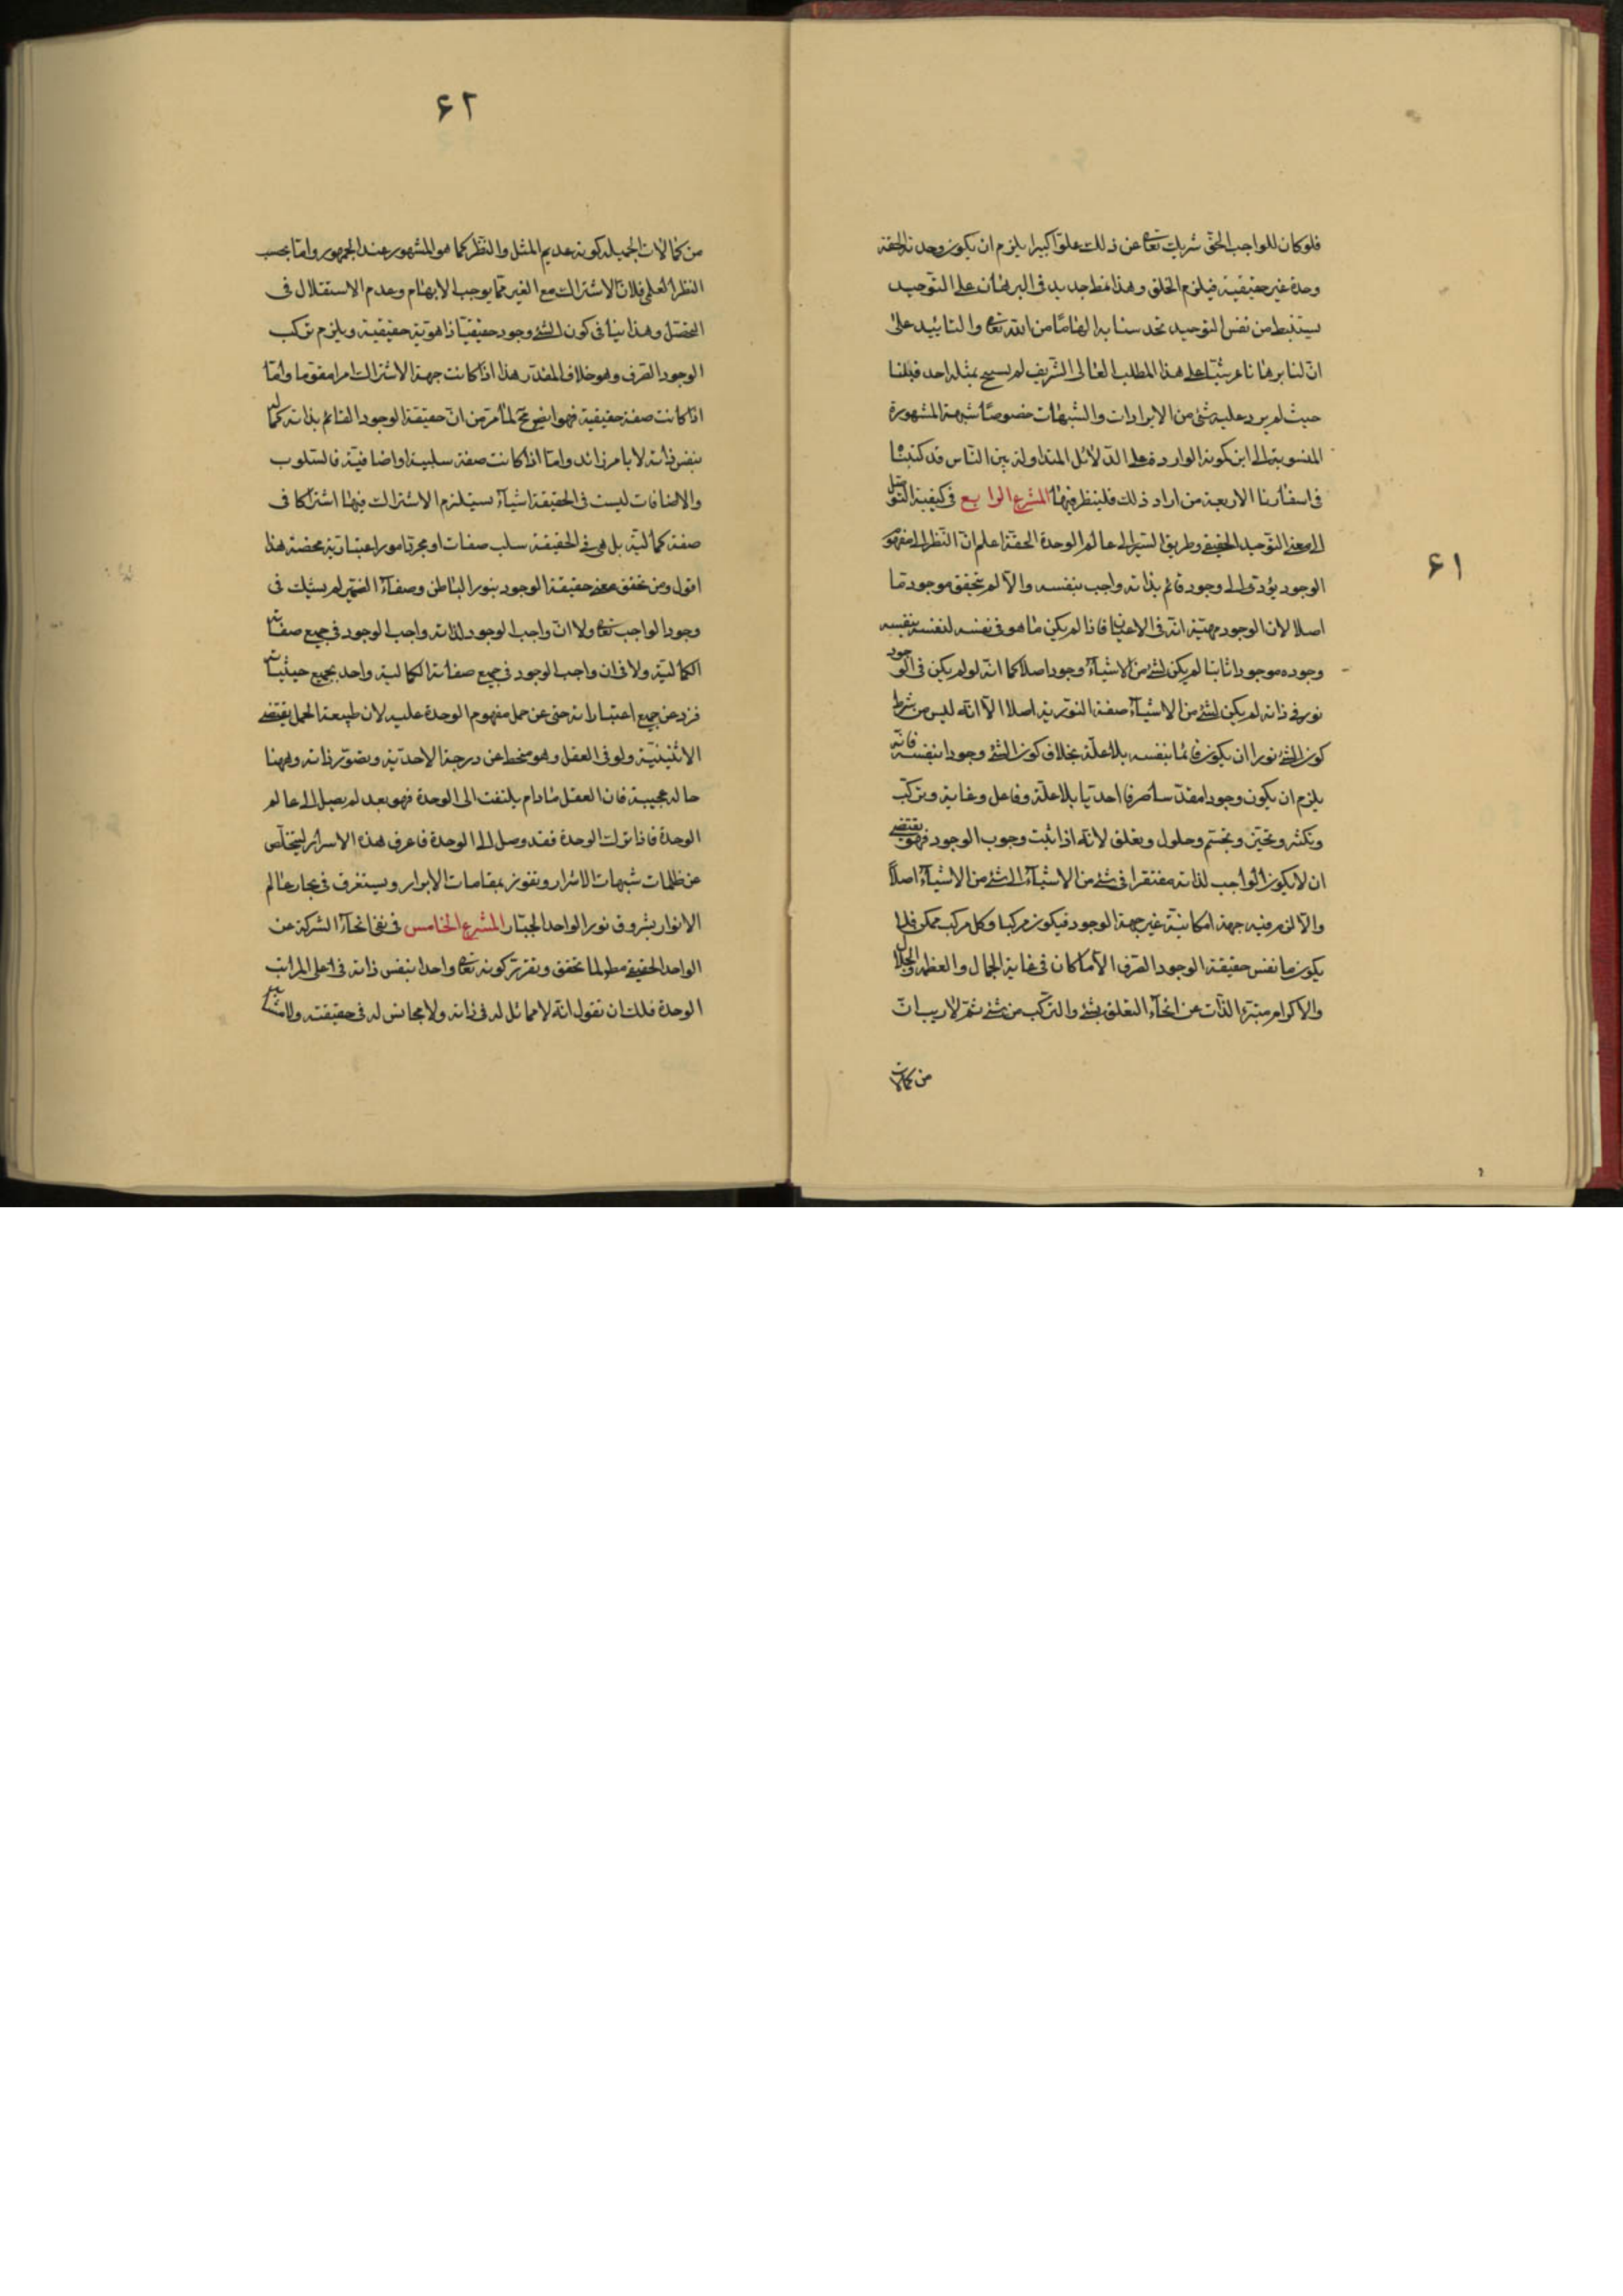 ۶۱
فلو كان للواجب الحق شريك تعالى عن ذلك علوّا كبيرا يلزم ان يكون وحدته الحقة
وحدة غير حقيقية فيلزم الخلق وهذا نمط جديد فى البرهان على التوحيد
يستنبط من نفس التوحيد تحدسنا به الهاما من الله تعالى والتائيد على
انّ لنا برهانا عرشيّا على هذا المطلب العالى الشريف لم يسمح بمثله احد قبلنا
حيث لم يرد عليه شئ من الايرادات والشبهات خصوصا شبهة المشهورة
المنسوبة الى ابن كمونة الواردة على الدّلائل المتداولة بين النّاس قد كتبنا
فى اسفارنا الاربعة من اراد ذلك فلينظر فيها المشرع الرابع فى كيفية التوسّل
الى معنى التوحيد الحقيقى وطريق السّير الى عالم الوحدة الحقة اعلم انّ النّظر الى مفهوم
الوجود يؤدّى الى وجود قائم بذاته واجب بنفسه والّا لم يتحقق موجود ما
اصلا لانّ الوجود مهيّته انّه فى الاعيان فاذا لم يكن ما هو فى نفسه لنفسه بنفسه
وجوده موجودا ثابتا لم يكن لشئ من الاشيآء وجود اصلا كما انّه لو لم يكن فى الوجود
نور فى ذاته لم يكن لشئ من الاشيآء صفة النوريّة اصلا الّا انّه ليس من شرط
كون الشئ نورا ان يكون قائما بنفسه بلا علّة بخلاف كون الشئ وجودا بنفسه فانّه
يلزم ان يكون وجودا مقدّسا صرفا احديّا بلا علّة وفاعل وغاية وتركّب
وتكثر وتحيّز وتجسّم وحلول وتعلق لانّه اذا ثبت وجوب الوجود فهو يقتضى
ان لا يكون الواجب لذاته مفتقرا فى شئ من الاشيآء الى شئ من الاشيآء اصلاً
والّا لزم فيه جهة امكانيّة غير جهة الوجود فيكون مركبا وكل مركب ممكن فلا
يكون ما نفس حقيقة الوجود الصّرف الّا ما كان فى غاية الجمال والعظمة والجلال
والاكرام مبرّء الذّات عن انحآء التعلق بشئ والتركّب من شئ ثم لا ريب انّ
من كمالات
۶۲
من كمالات الجميلة كونه عديم المثل والنّظير كما هو المشهور عند الجمهور وامّا بحسب
النظر العلمى فلانّ الاشتراك مع الغير ممّا يوجب الابهام وعدم الاستقلال فى
التحصّل وهذا ينافى كون الشئ وجود حقيقيّا ذا هويّة حقيقية ويلزم تركب
الوجود الصّرف وهو خلاف المقدّر هذا اذا كانت جهة الاشتراك امرا مقوما وامّا
اذا كانت صفة حقيقية فهو ايضا مح لما مرّ من انّ حقيقة الوجود القائم بذاته كماله
بنفس ذاته لا بامر زائد وامّا اذا كانت صفة سلبية او اضافيّة فالسّلوب
والاضافات ليست فى الحقيقة اشيآء يستلزم الاشتراك فيها اشتراكا فى
صفة كماليّة بل هى فى الحقيقة سلب صفات او مجرّد امور اعتباريّة محضة هذا
اقول ومن تحقق معنى حقيقة الوجود بنور الباطن وصفآء الضّمير لم يشك فى
وجود الواجب تعالى ولا انّ واجب الوجود لذاته واجب الوجود فى جميع صفاته
الكماليّة ولا فى ان واجب الوجود فى جميع صفاته الكمالية واحد بجميع حيثياته
فرد عن جميع اعتباراته حتى عن حمل مفهوم الوحدة عليه لان طبيعة الحمل يقتضى
الاثنينيّة ولو فى العقل وهو منحط عن درجة الاحديّة وتصوّر ذاته وههنا
حالة عجيبة فان العقل مادام يلتفت الى الوحدة فهو بعد لم يصل الى عالم
الوحدة فاذا ترك الوحدة فقد وصل الى الوحدة فاعرف هذه الاسرار ليتخلّص
عن ظلمات شبهات الاشرار وتفوز بمقامات الابرار ويستغرق فى بحار عالم
الانوار بشروق نور الواحد الجبّار المشرع الخامس فى نفى انحآء الشركة عن
الواحد الحقيقى مطولما تحقق وتقرّر كونه تعالى واحدا بنفس ذاته فى اعلى المراتب
الوحدة فلك ان تقول انّه لا مماثل له فى ذاته ولا مجانس له فى حقيقته ولا مشابه